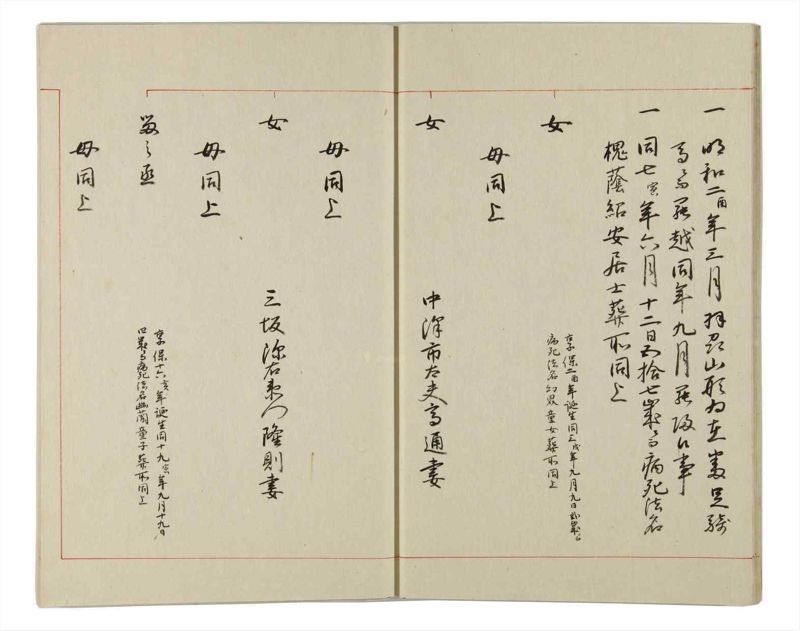 一 明和二酉年三月羽州山形為在番足
罷越同年九月罷帰候事
一 同七寅年六月十二日五拾七歳ニ而病死法名
槐蔭紹安居士葬所同上
女
享保二酉年誕生同三戌年九月九日弐歳ニ而
病死法名幻 童女葬所同上
母同上
女
中澤市太夫高通妻
母同上
女
三坂弥右衛門隆則妻
母同上
留之丞
享保十六亥年誕生同十九寅年九月十九日
四歳ニ而病死法名幽蘭童子葬所同上
母同上